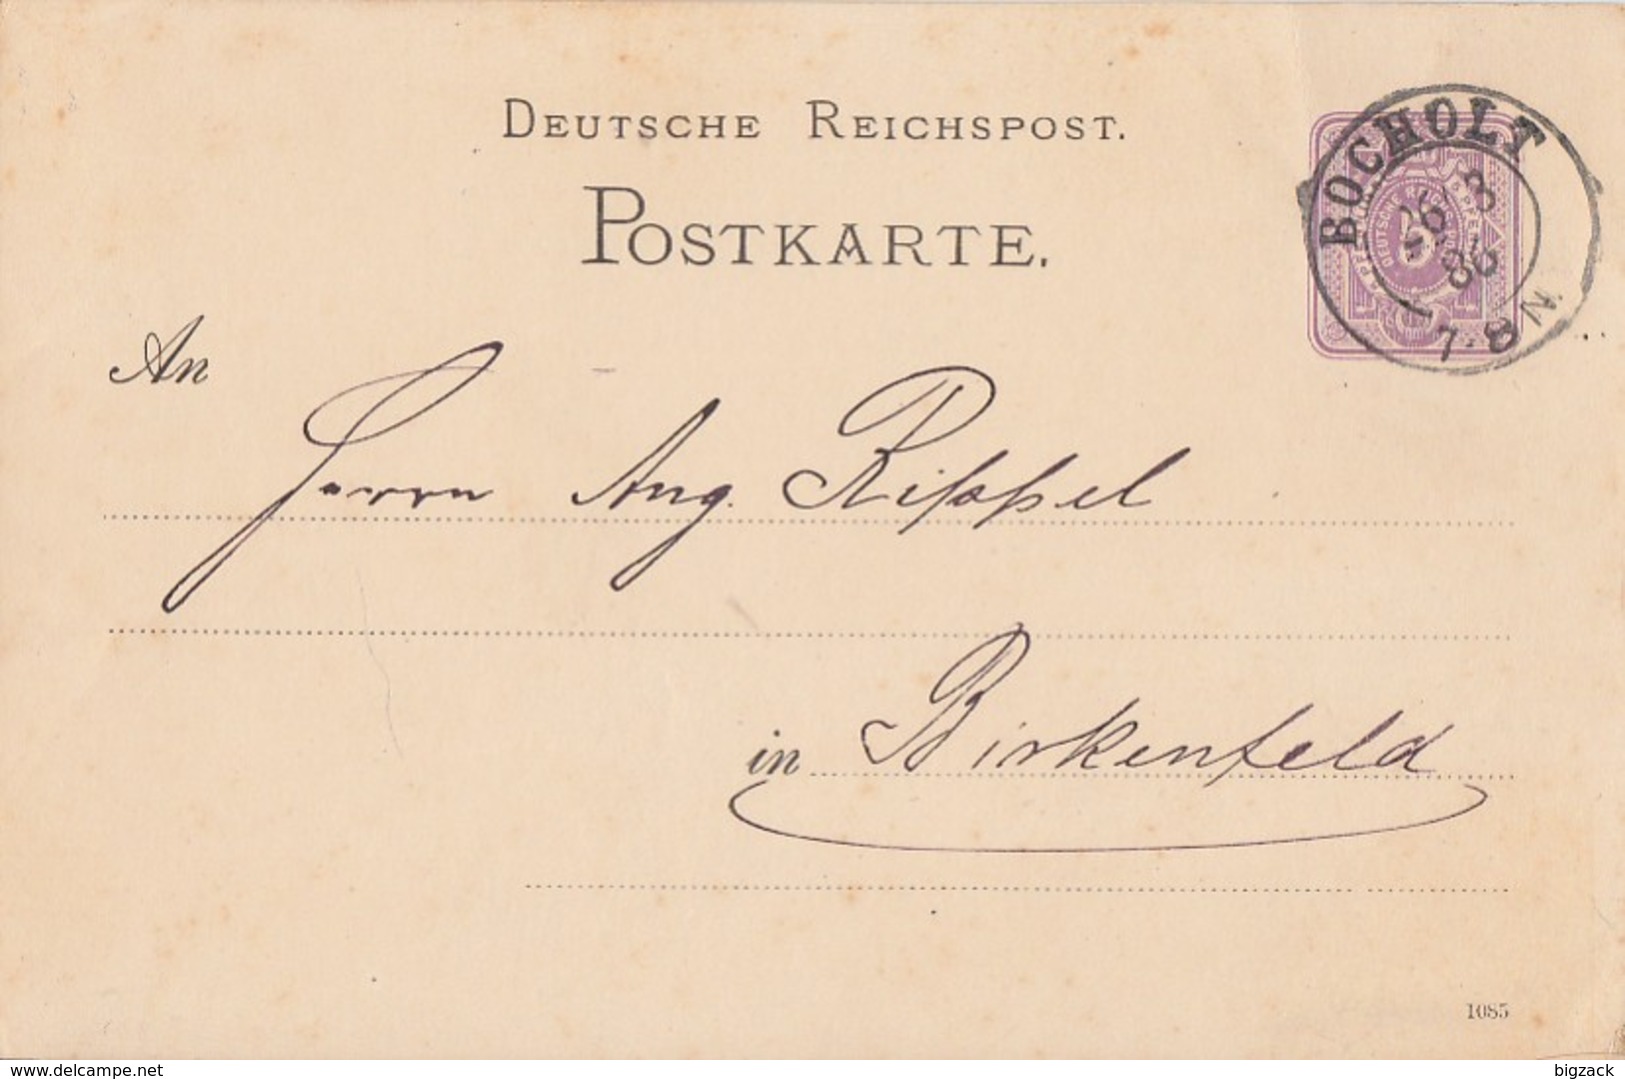 DEUTSCHE REICHSPOST.
POSTKARTE.
BOCHOLT
26 3
86
7-8 N.
An
Herrn Aug. Rippel
in Birkenfeld
1085
delcampe.net
bigzack